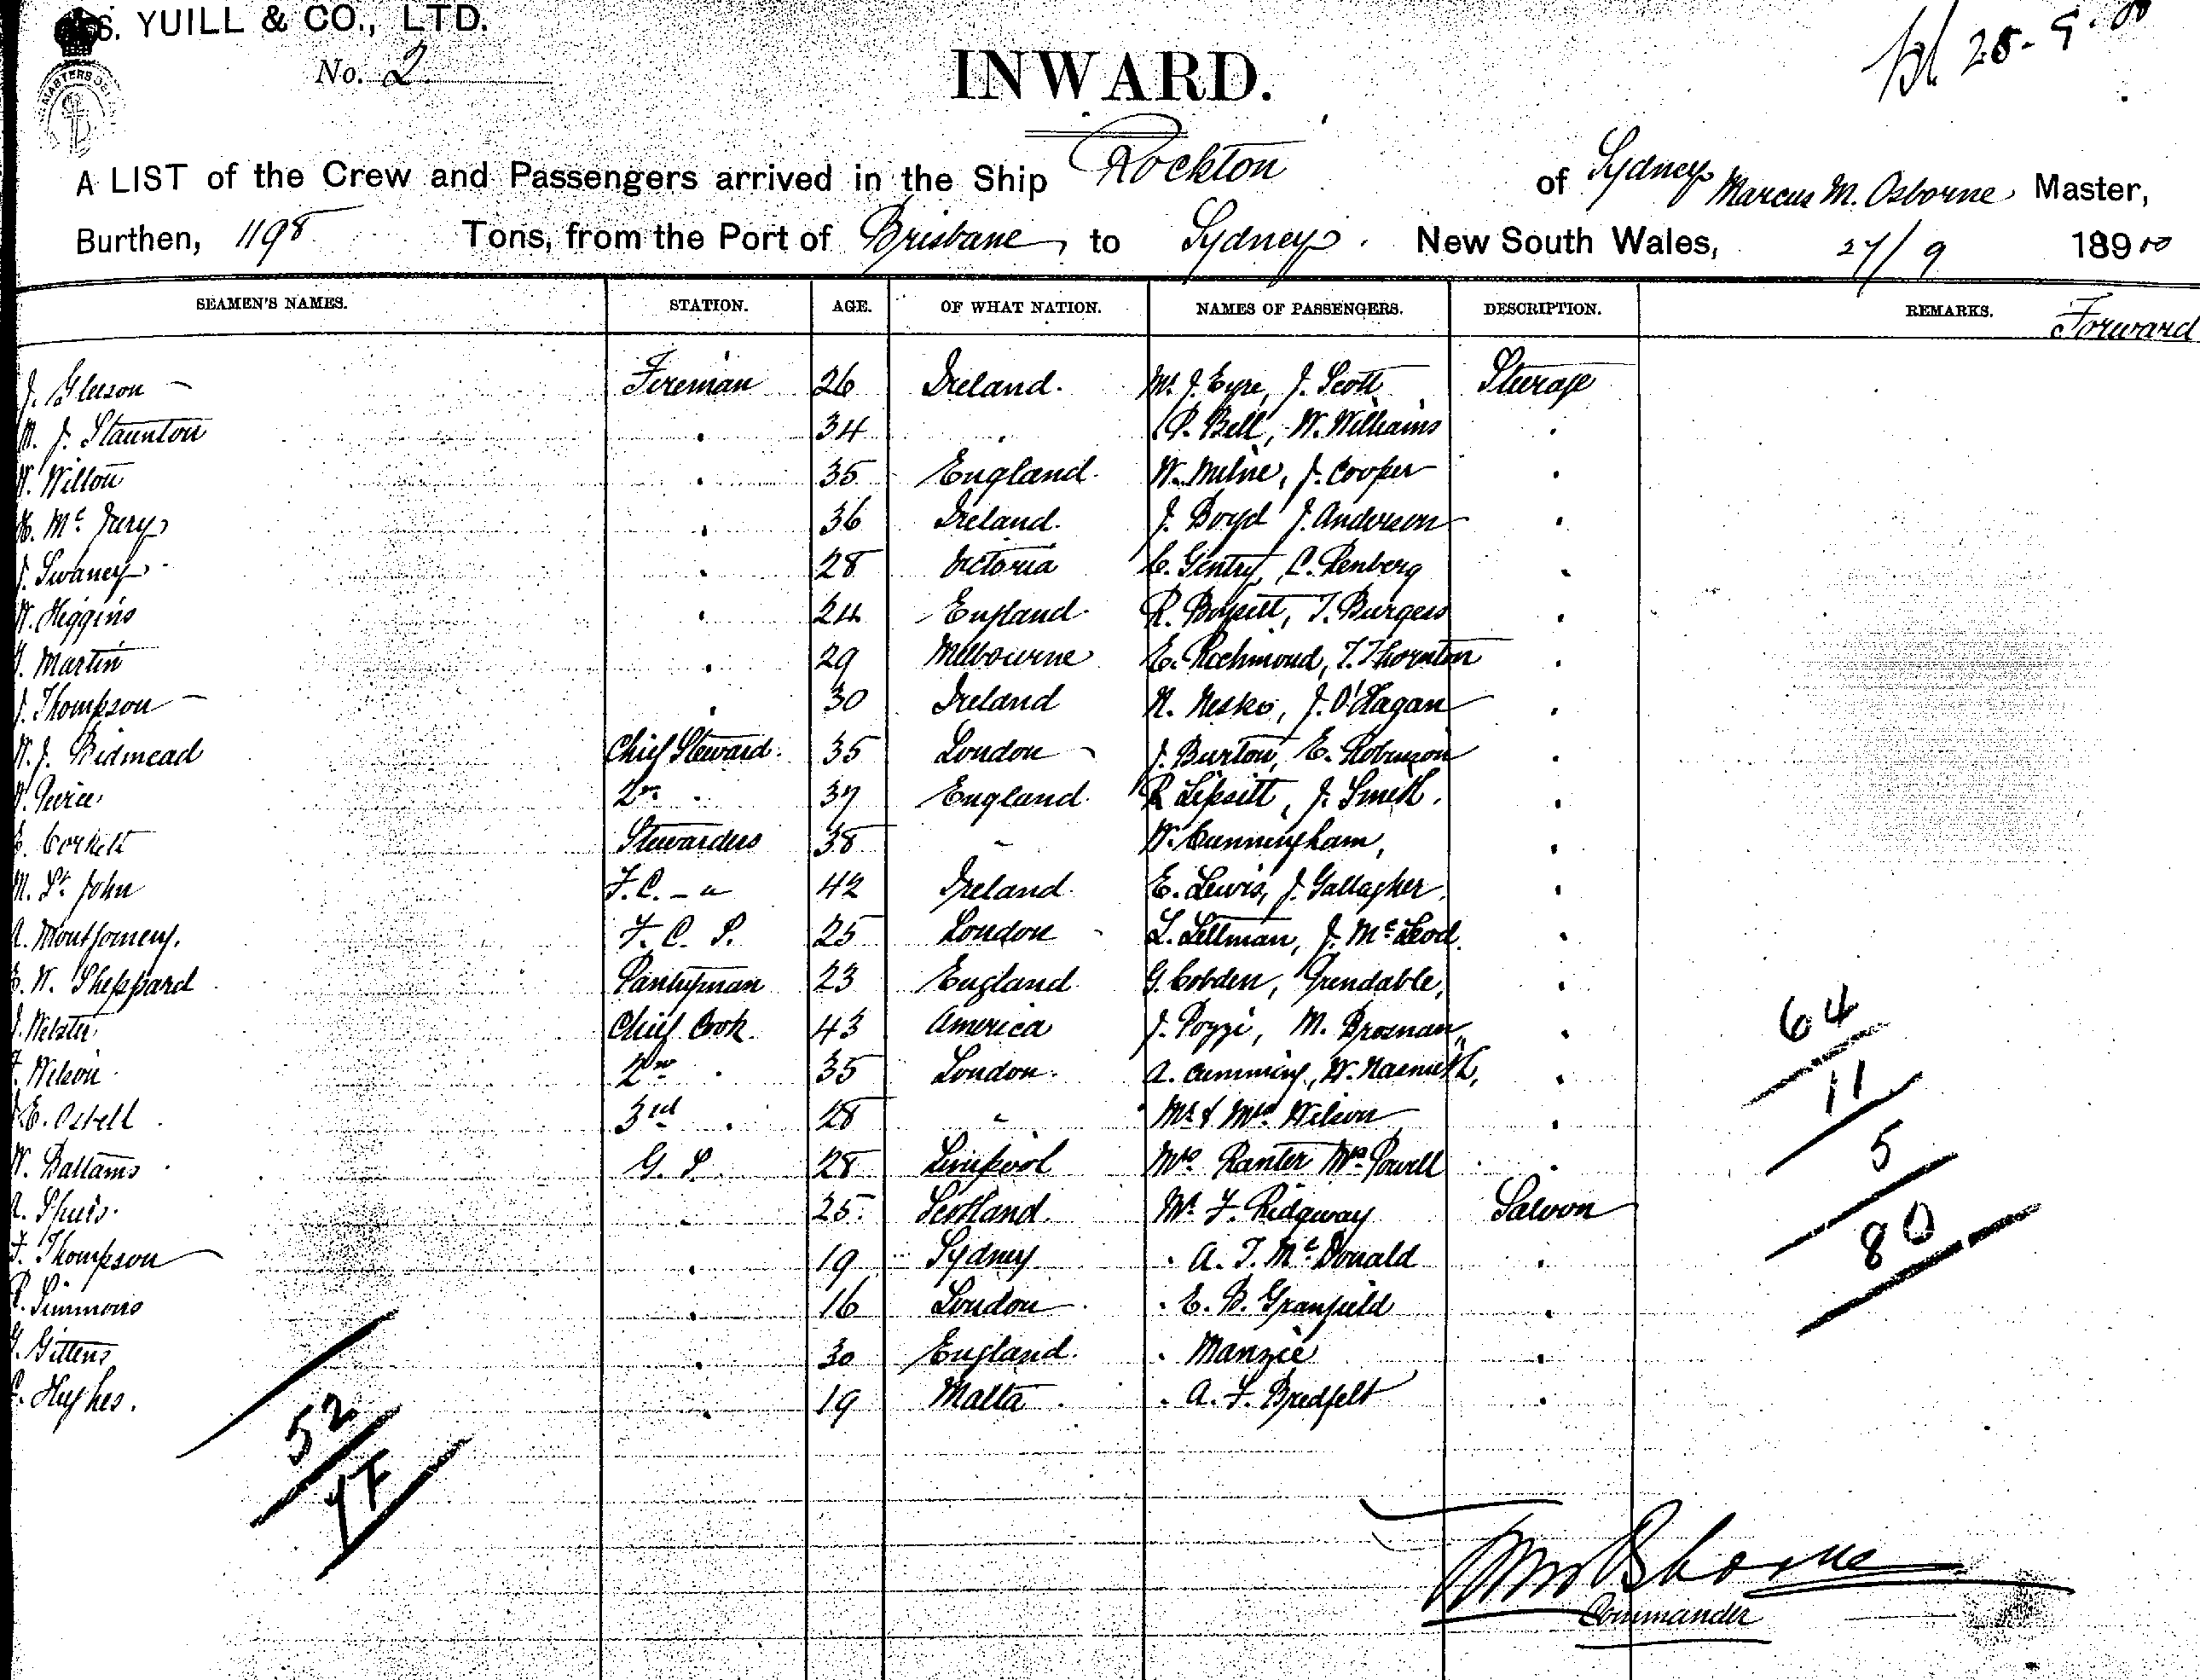 S. YUILL & CO., LTD.
No. 2
INWARD.
28-9-00
MASTERS
A LIST of the Crew and Passengers arrived in the Ship Rockton of Sydney Marcus M. Osborne Master,
Burthen, 1198 Tons, from the Port of Brisbane to Sydney. New South Wales, 27/9 18900
SEAMEN'S NAMES. STATION. AGE. OF WHAT NATION. NAMES OF PASSENGERS. DESCRIPTION. REMARKS. Forward
J. Gleeson Fireman 26 Ireland. Mr. J. Eyre, J. Scott Steerage
M. J. Staunton " 34 " P. Bell, W. Williams "
W. Wilton " 35 England. W. Milne, J. Cooper "
Mc. Jury " 36 Ireland. J. Boyd J. Anderson "
J. Swaney " 28 Victoria C. Gentry, C. Renberg "
W. Higgins " 24 England. R. T. Burgess "
J. Martin " 29 Melbourne E. Richmond, T. Thornton "
J. Thompson " 30 Ireland N. Nesko, J. O'Hagan "
W. J. Bidmead Chief Steward. 35 London J. Burton, E. Robinson "
2nd " 37 England. R. Lipsitt, J. Smith. "
E. Corkett Stewardess 38 " W. Cunningham, "
M. St. John F.C. - " 42 Ireland. E. Lewis, J. Gallagher. "
A. Montgomery. F. C. S. 25 London L. Lettman, J. McLeod. "
E. W. Sheppard Pantryman 23 England G. Cobden, Grendable, "
J. Webster Chief Cook. 43 America J. Pozzi, M. Brosnan, "
F. Nelson 2nd " 35 London. A. Cumming, W. Nasmith, "
E. Osbell 3rd " 28 " Mr. & Mrs. Wilson "
W. Ballams G. S. 28 Liverpool Mrs. Ranter Mrs. Powell "
A. " 25. Scotland. Mr. F. Ridgway Saloon
F. Thompson " 19 Sydney " A. T. McDonald "
R. Simmons " 16 London " E. B. Granfield "
G. Gittens " 30 England. " Manzie "
C. Hughes. " 19 Malta " A. F. Bredfelt "
64
11
5
80
52
Osborne
Commander